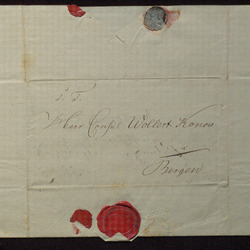 S. T.
Herr Consul Wollert Konow
Bergen